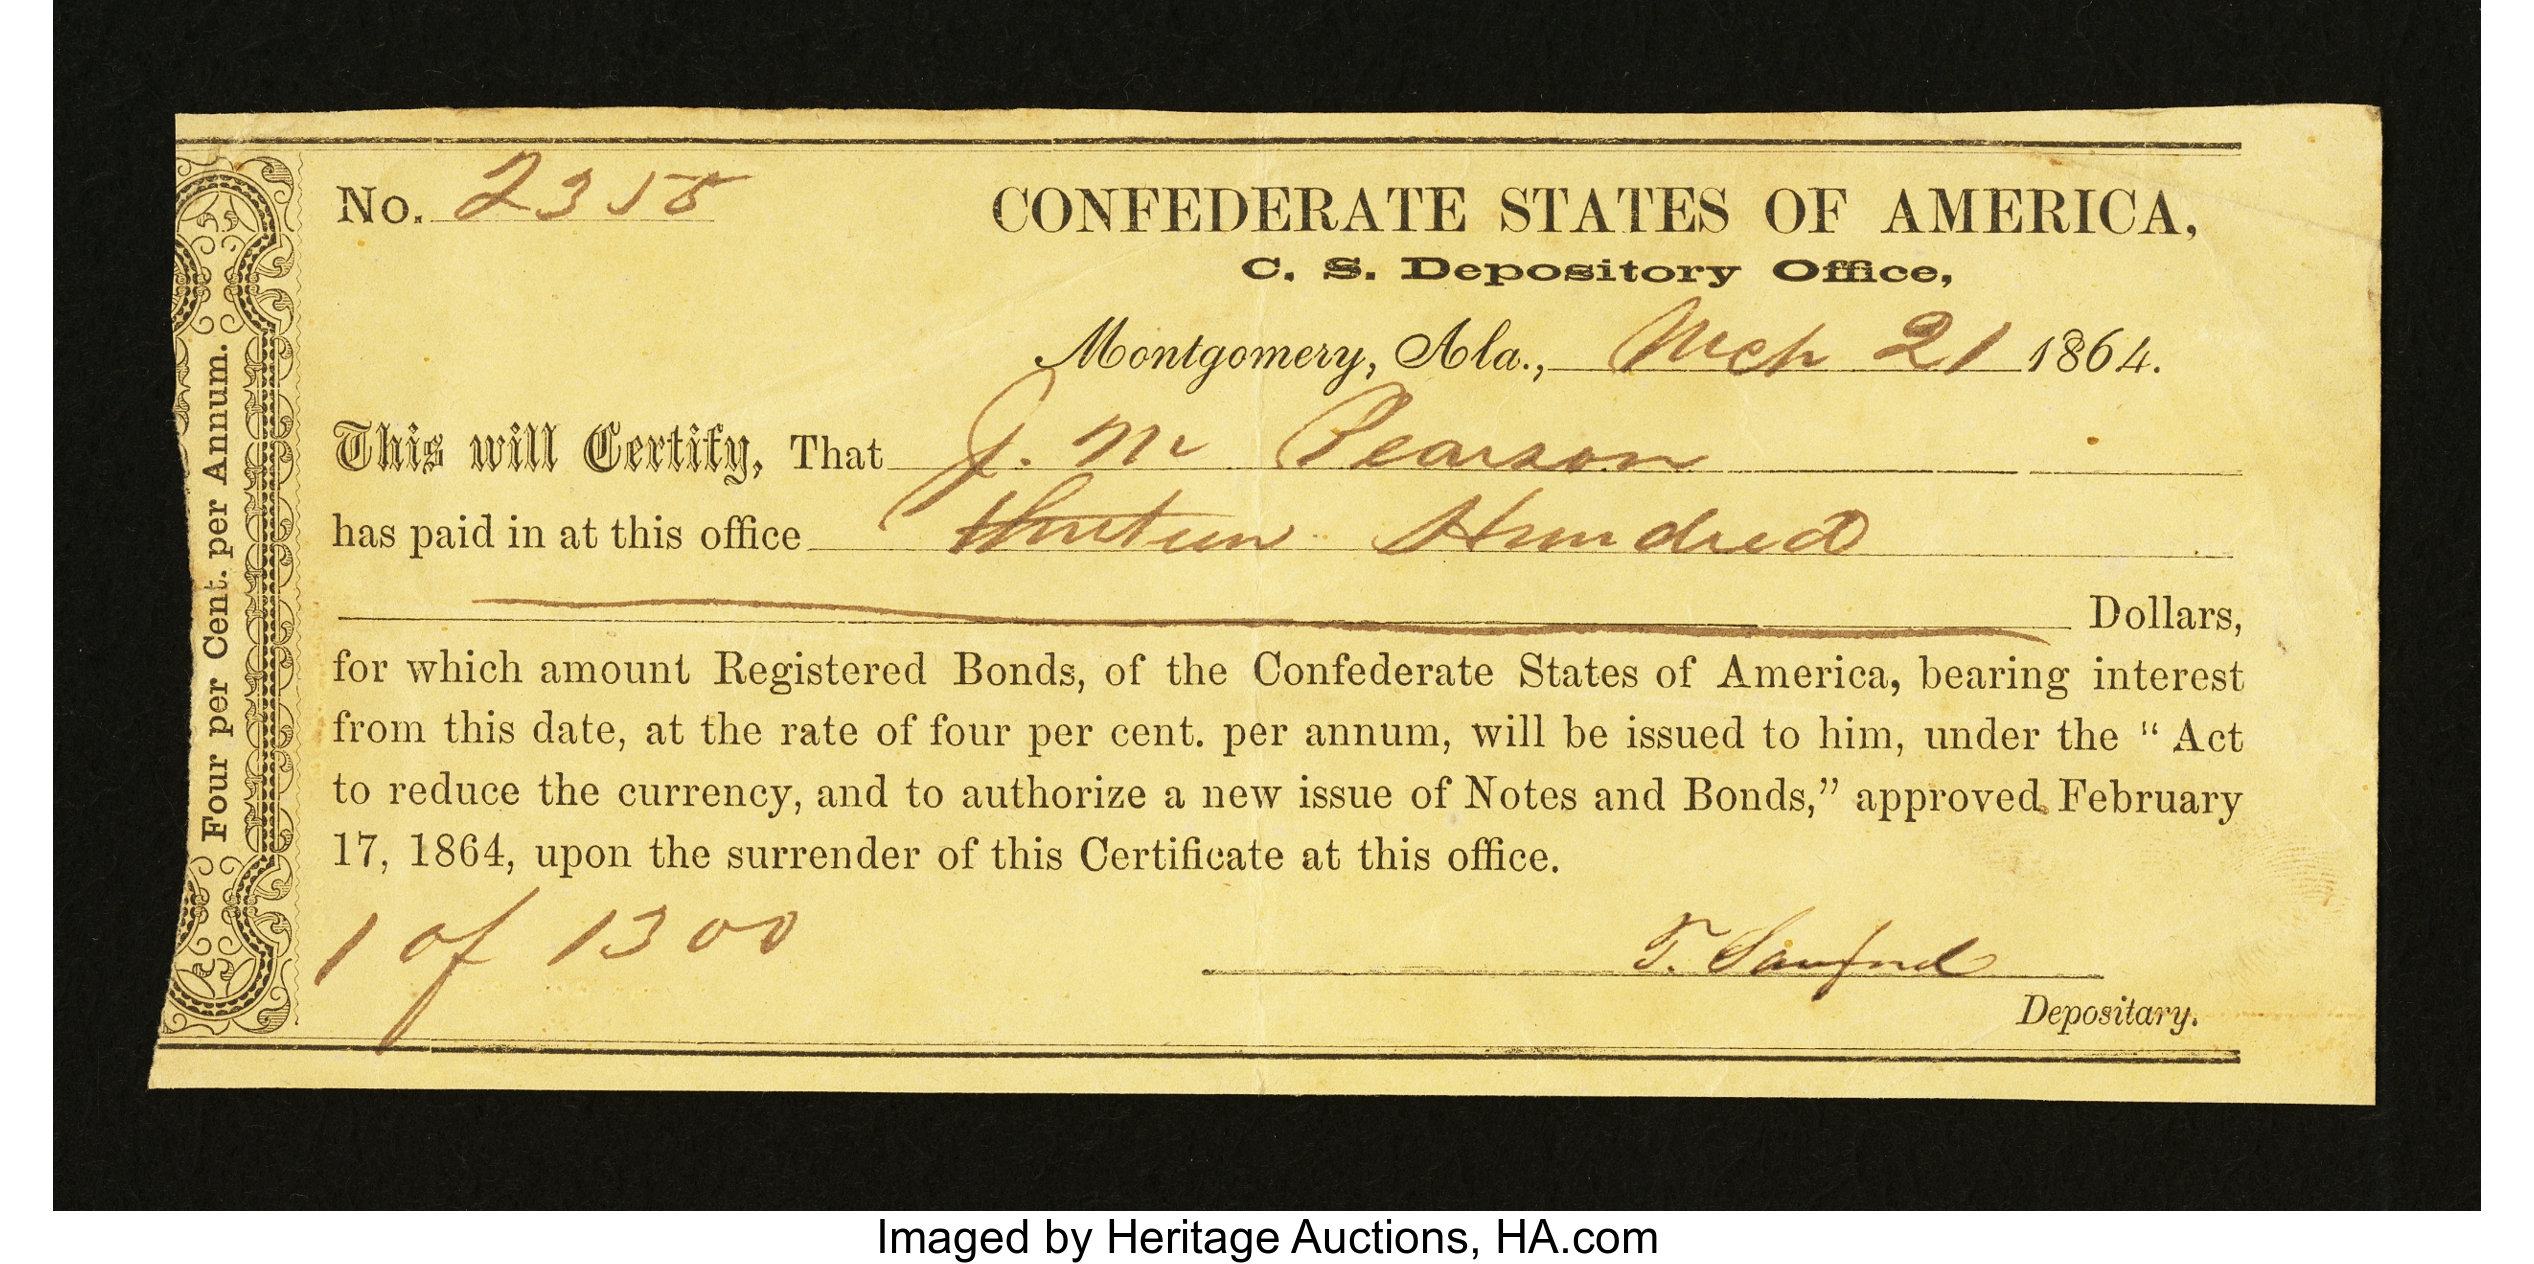 No. 2355
CONFEDERATE STATES OF AMERICA,
C. S. Depository Office,
Montgomery, Ala., Mch 21 1864.
This will Certify, That J. M Pearson
has paid in at this office Thirteen Hundred
Dollars,
for which amount Registered Bonds, of the Confederate States of America, bearing interest
from this date, at the rate of four per cent. per annum, will be issued to him, under the "Act
to reduce the currency, and to authorize a new issue of Notes and Bonds," approved February
17, 1864, upon the surrender of this Certificate at this office.
1 of 1300
T. Sanford
Depositary.
Four per Cent. per Annum.
Imaged by Heritage Auctions, HA.com